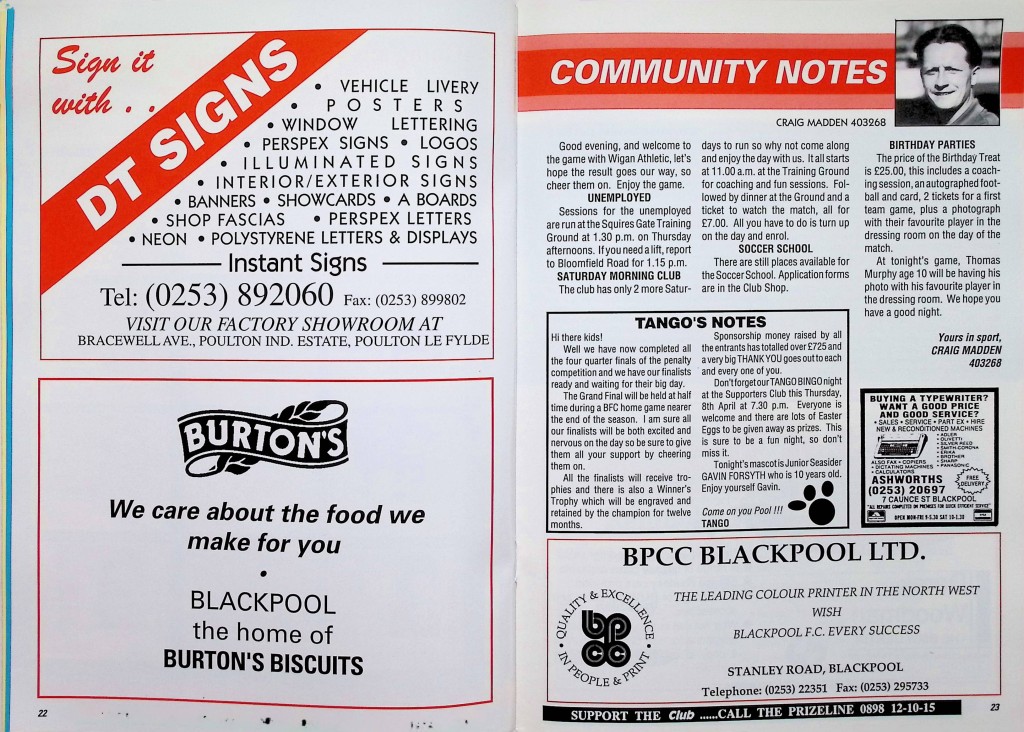 Sign it
with . .
DT SIGNS
• VEHICLE LIVERY
• POSTERS
• WINDOW LETTERING
• PERSPEX SIGNS • LOGOS
• ILLUMINATED SIGNS
• INTERIOR/EXTERIOR SIGNS
• BANNERS • SHOWCARDS • A BOARDS
• SHOP FASCIAS • PERSPEX LETTERS
• NEON • POLYSTYRENE LETTERS & DISPLAYS
Instant Signs
Tel: (0253) 892060 Fax: (0253) 899802
VISIT OUR FACTORY SHOWROOM AT
BRACEWELL AVE., POULTON IND. ESTATE, POULTON LE FYLDE
BURTON'S
We care about the food we
make for you
•
BLACKPOOL
the home of
BURTON'S BISCUITS
22
COMMUNITY NOTES
CRAIG MADDEN 403268
Good evening, and welcome to
the game with Wigan Athletic, let's
hope the result goes our way, so
cheer them on. Enjoy the game.
UNEMPLOYED
Sessions for the unemployed
are run at the Squires Gate Training
Ground at 1.30 p.m. on Thursday
afternoons. If you need a lift, report
to Bloomfield Road for 1.15 p.m.
SATURDAY MORNING CLUB
The club has only 2 more Satur-
days to run so why not come along
and enjoy the day with us. It all starts
at 11.00 a.m. at the Training Ground
for coaching and fun sessions. Fol-
lowed by dinner at the Ground and a
ticket to watch the match, all for
£7.00. All you have to do is turn up
on the day and enrol.
SOCCER SCHOOL
There are still places available for
the Soccer School. Application forms
are in the Club Shop.
BIRTHDAY PARTIES
The price of the Birthday Treat
is £25.00, this includes a coach-
ing session, an autographed foot-
ball and card, 2 tickets for a first
team game, plus a photograph
with their favourite player in the
dressing room on the day of the
match.
At tonight's game, Thomas
Murphy age 10 will be having his
photo with his favourite player in
the dressing room. We hope you
have a good night.
Yours in sport,
CRAIG MADDEN
403268
TANGO'S NOTES
Hi there kids!
Well we have now completed all
the four quarter finals of the penalty
competition and we have our finalists
ready and waiting for their big day.
The Grand Final will be held at half
time during a BFC home game nearer
the end of the season. I am sure all
our finalists will be both excited and
nervous on the day so be sure to give
them all your support by cheering
them on.
All the finalists will receive tro-
phies and there is also a Winner's
Trophy which will be engraved and
retained by the champion for twelve
months.
Sponsorship money raised by all
the entrants has totalled over £725 and
a very big THANK YOU goes out to each
and every one of you.
Don't forget our TANGO BINGO night
at the Supporters Club this Thursday,
8th April at 7.30 p.m. Everyone is
welcome and there are lots of Easter
Eggs to be given away as prizes. This
is sure to be a fun night, so don't
miss it.
Tonight's mascot is Junior Seasider
GAVIN FORSYTH who is 10 years old.
Enjoy yourself Gavin.
Come on you Pool !!!
TANGO
BUYING A TYPEWRITER?
WANT A GOOD PRICE
AND GOOD SERVICE?
• SALES • SERVICE • PART EX • HIRE
NEW & RECONDITIONED MACHINES
• ADLER
• OLIVETTI
• SILVER REED
• SMITH-CORONA
• ERIKA
• BROTHER
• SHARP
• PANASONIC
ALSO FAX • COPIERS
• DICTATING MACHINES
• CALCULATORS
ASHWORTHS
(0253) 20697
FREE
DELIVERY
7 CAUNCE ST BLACKPOOL
"ALL REPAIRS COMPLETED ON PREMISES FOR QUICK EFFICIENT SERVICE"
OPEN MON-FRI 9-5.30 SAT 10-1.30
BPCC BLACKPOOL LTD.
• QUALITY & EXCELLENCE •
IN PEOPLE & PRINT
bpcc
THE LEADING COLOUR PRINTER IN THE NORTH WEST
WISH
BLACKPOOL F.C. EVERY SUCCESS
STANLEY ROAD, BLACKPOOL
Telephone: (0253) 22351 Fax: (0253) 295733
SUPPORT THE Club ......CALL THE PRIZELINE 0898 12-10-15
23